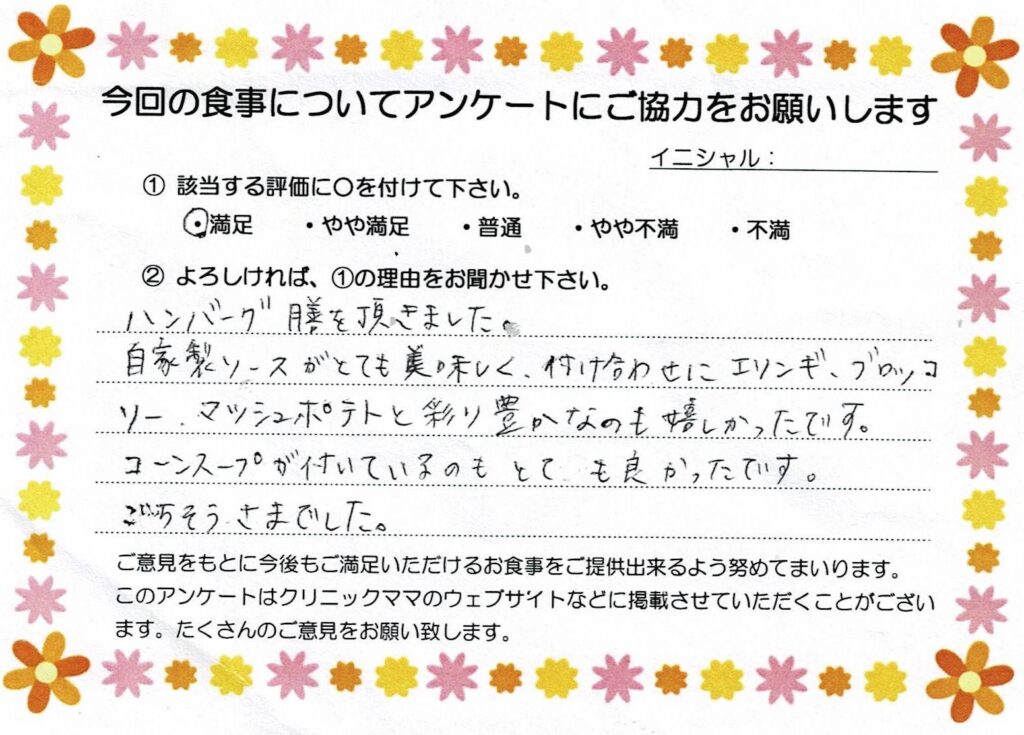 今回の食事についてアンケートにご協力をお願いします
イニシャル：
① 該当する評価に〇を付けて下さい。
・満足 ・やや満足 ・普通 ・やや不満 ・不満
② よろしければ、①の理由をお聞かせ下さい。
ハンバーグ膳を頂きました。
自家製ソースがとても美味しく、付け合わせにエリンギ、ブロッコ
リー、マッシュポテトと彩り豊かなのも嬉しかったです。
コーンスープが付いているのもとても良かったです。
ごちそうさまでした。
ご意見をもとに今後もご満足いただけるお食事をご提供出来るよう努めてまいります。
このアンケートはクリニックママのウェブサイトなどに掲載させていただくことがござい
ます。たくさんのご意見をお願い致します。